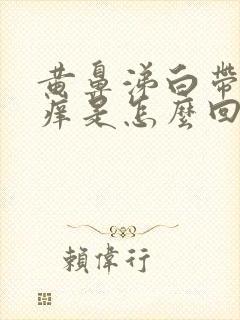 黄鼻涕白帶
痒是怎麼回
賴偉行